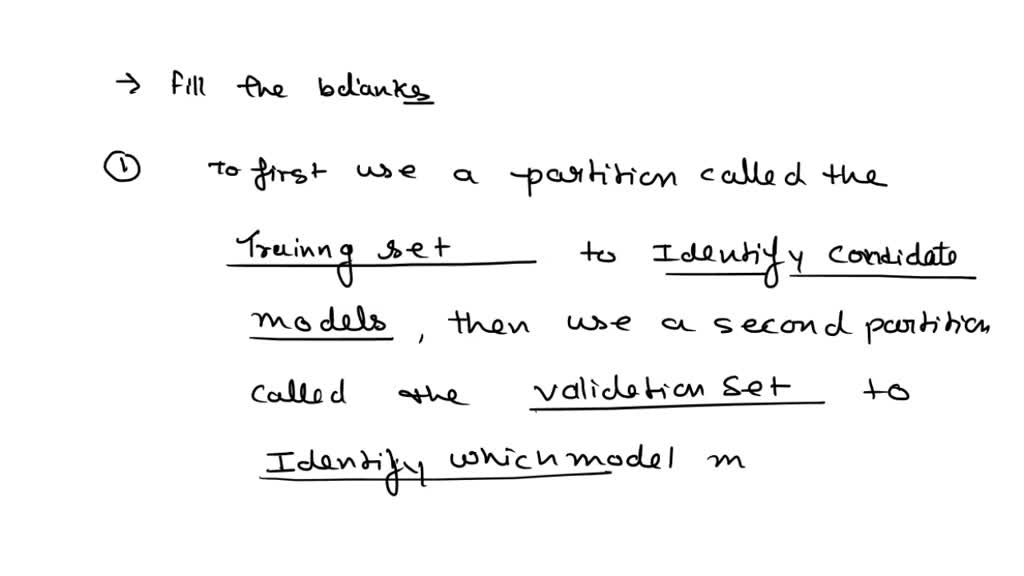 → fill the blanks
① to first use a partition called the
Training set to Identify candidate
models, then use a second partition
called the validation set to
Identify which model m